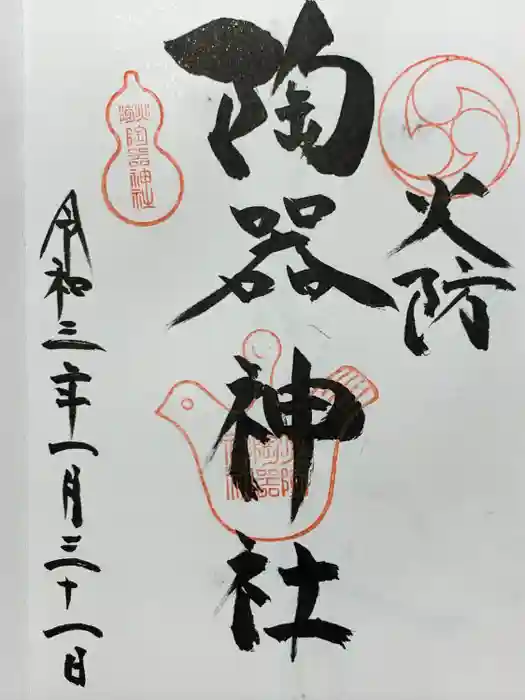 火防
陶器神社
火防
陶器神社
火防
陶器
神社
令和三年一月三十一日